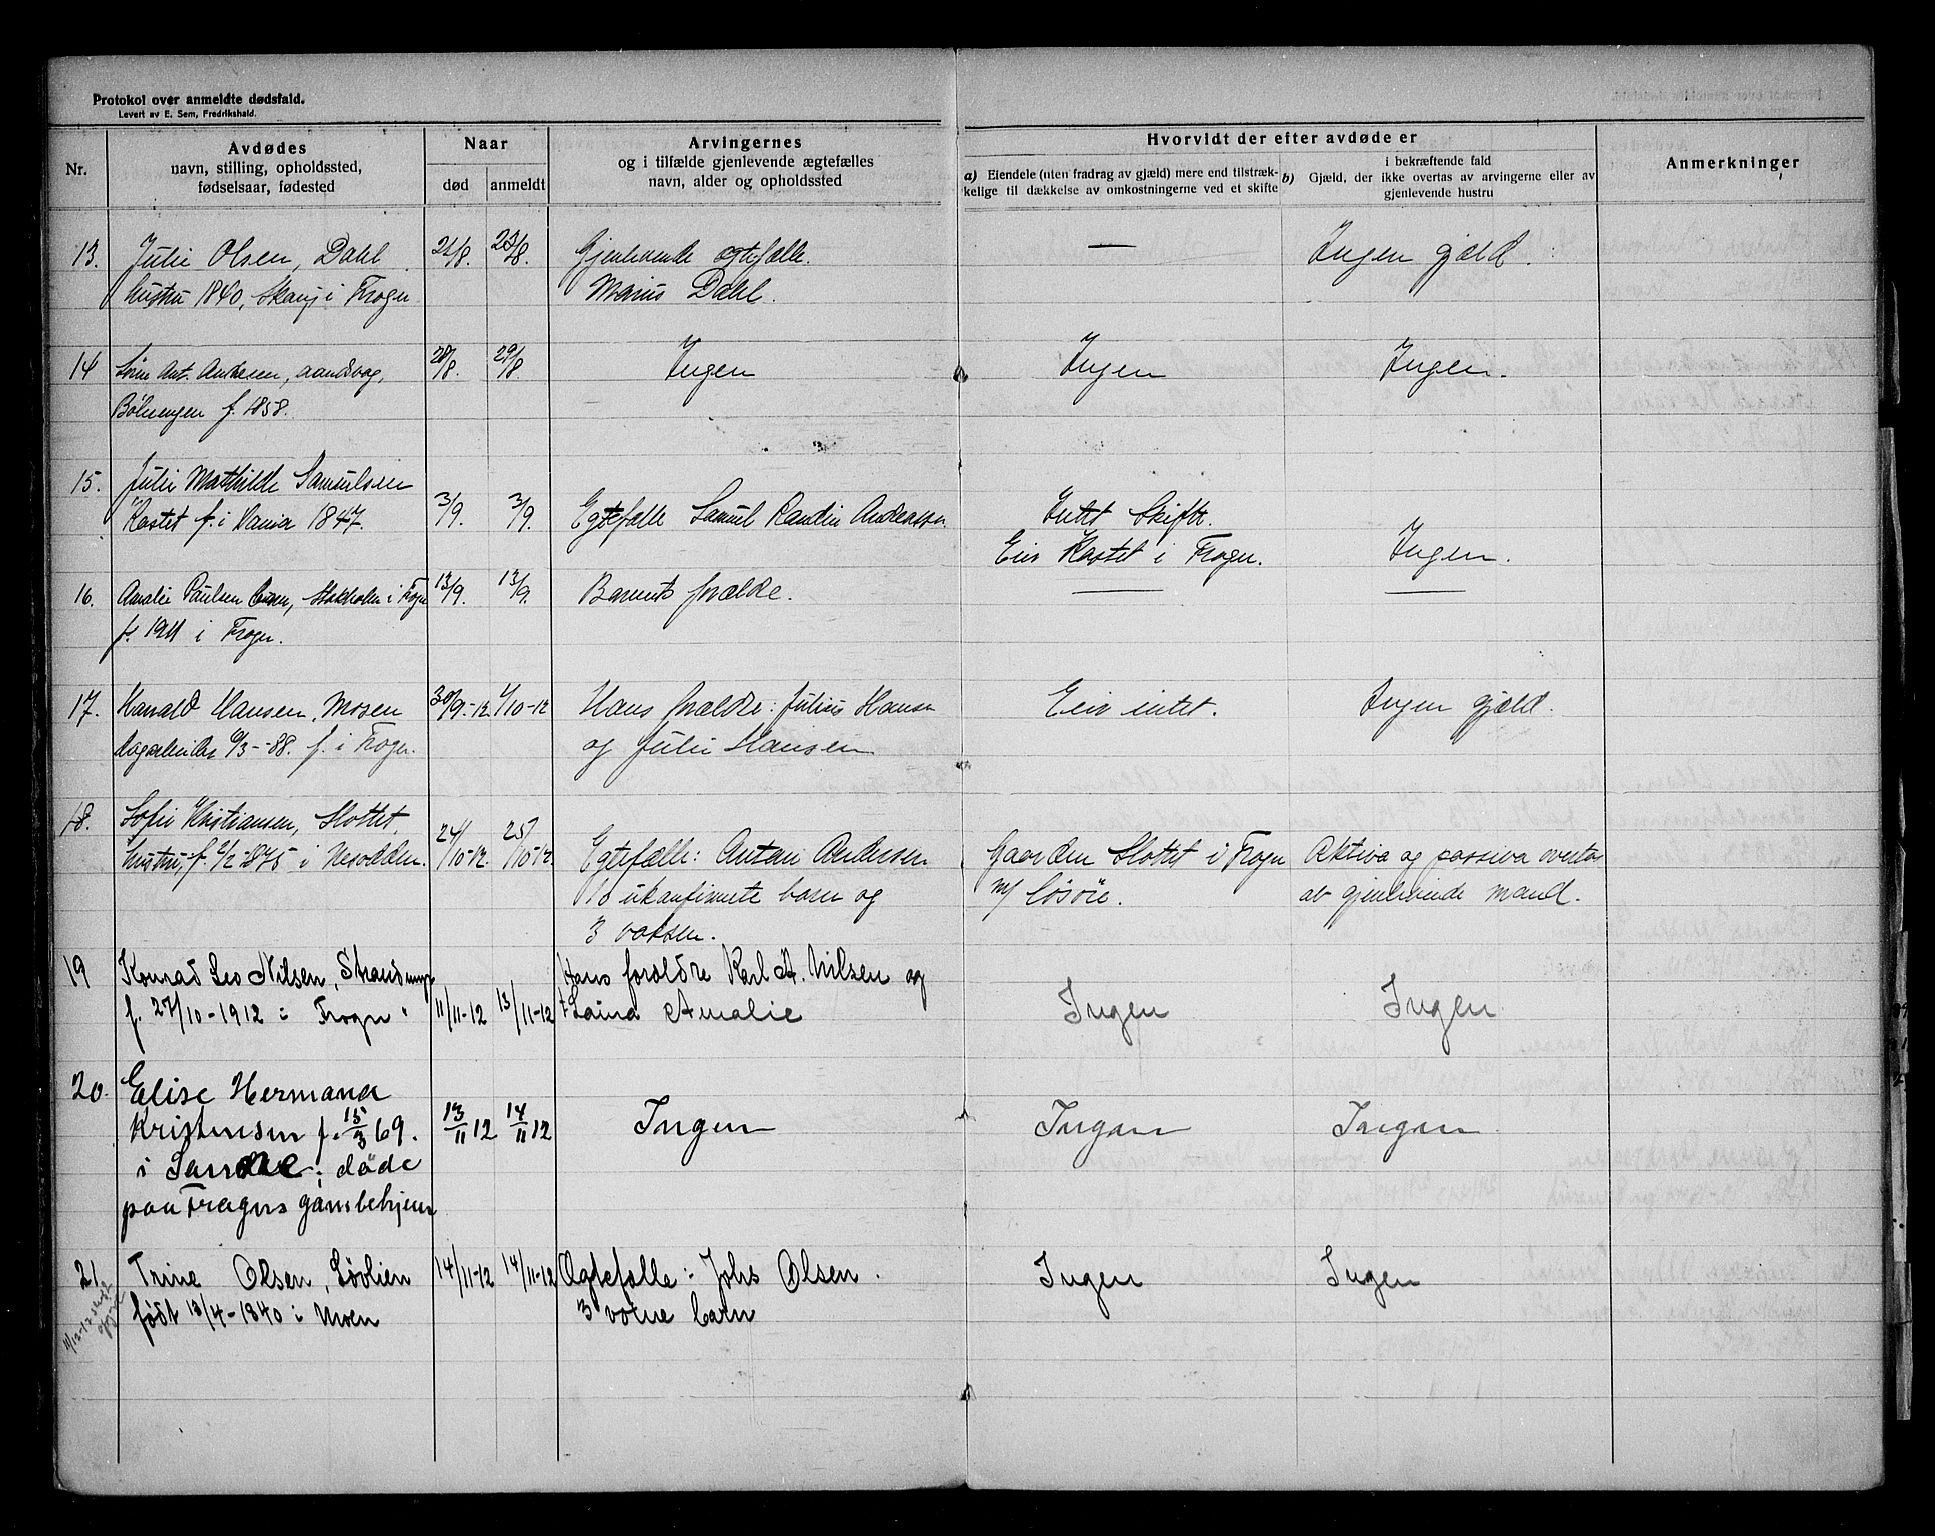 Protokol over anmeldte dødsfald.
Levert av E. Sem, Fredrikshald.
Nr.
Avdødes
navn, stilling, opholdssted,
fødselsaar, fødested
Naar
død
anmeldt
Arvingernes
og i tilfælde gjenlevende ægtefælles
navn, alder og opholdssted
Hvorvidt der efter avdøde er
a) Eiendele (uten fradrag av gjæld) mere end tilstræk-
kelige til dækkelse av omkostningerne ved et skifte
b) i bekræftende fald
Gjæld, der ikke overtas av arvingerne eller av
gjenlevende hustru
Anmerkninger
13. Julie Olsen, Dahl 21/8. 23/8. Gjenlevende egtefælle. — Ingen gjæld.
hustru 1840, Skau, i Frogn Marius Dahl.
14 Ant. Andresen, aandsvag, 28/8. 29/8. Ingen Ingen Ingen.
f. 1858.
15. Julie Mathilde Samuelsen
Kastet f. i 1847. 3/9. 3/9. Egtefælle Samuel Andreassen Intet Skifte.
Eier Kastet i Frogn. Ingen.
16. Amalie Paulsen Stokholm i Frogn 13/9. 13/9. Barnets forældre. — —
f. 1911 i Frogn.
17. Harald Hansen, Mosen 30/9-12. 1/10-12 Hans forældre: Julius Hansen Eier intet. Ingen gjæld.
dagarbeider 6/3-88. f. i Frogn. og Julie Hansen
18. Sofie Kristiansen, Slottet,
hustru, f. 2/2-1875 i Nesodden. 24/10-12. 25/10-12. Egtefælle: Anton Andersen Gaarden Slottet i Frogn Aktiva og passiva overtas
10 ukonfirmerte barn og m/ løsøre. av gjenlevende mand.
3 voksen.
19 Konrad Leo Nilsen, Hans foræld­re Karl A. Nilsen og
f. 27/10-1912 i Frogn 11/11-12 13/11-12 Laura Amalie Ingen Ingen
20. Elise Hermana
Kristensen f. 15/3 69. 13/11 12 14/11 12 Ingen Ingen Ingen
i Sande; døde
paa Frogns gamlehjem
21. Trine Olsen, Løvlien 14/11-12 14/11-12 Ægtefælle: Johs Olsen. Ingen Ingen
født 13/4-1840 i Moen 3 voxne barn
11/12-12